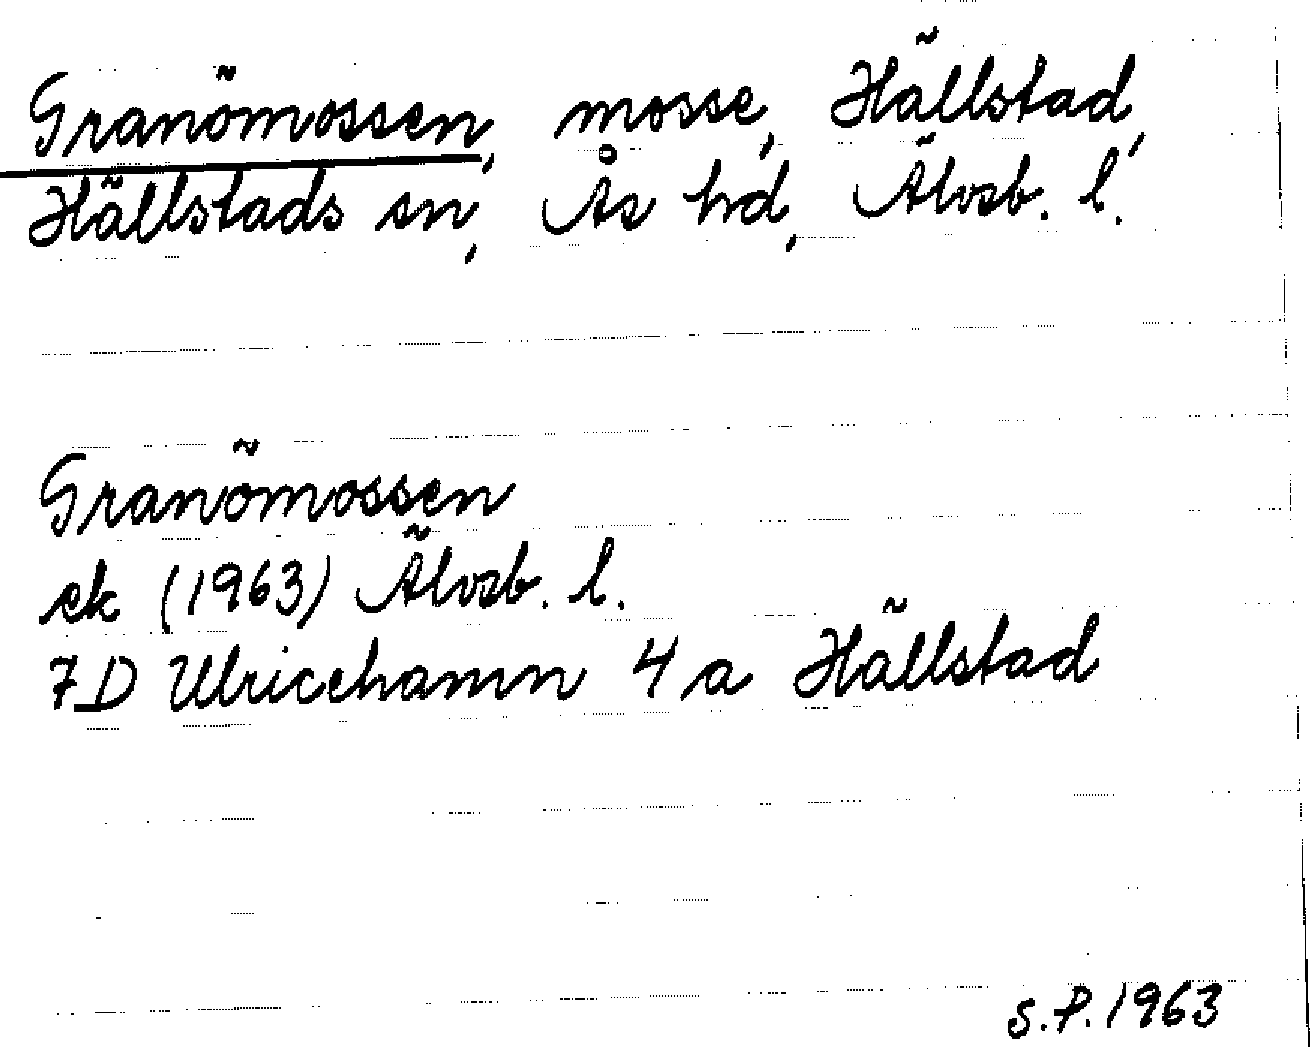 Granömossen, mosse, Hällstad,
Hällstads sn, Ås hd, Älvsb. l.
Granömossen
ek (1963) Älvsb. l.
7D Ulricehamn 4 a Hällstad
S.P. 1963